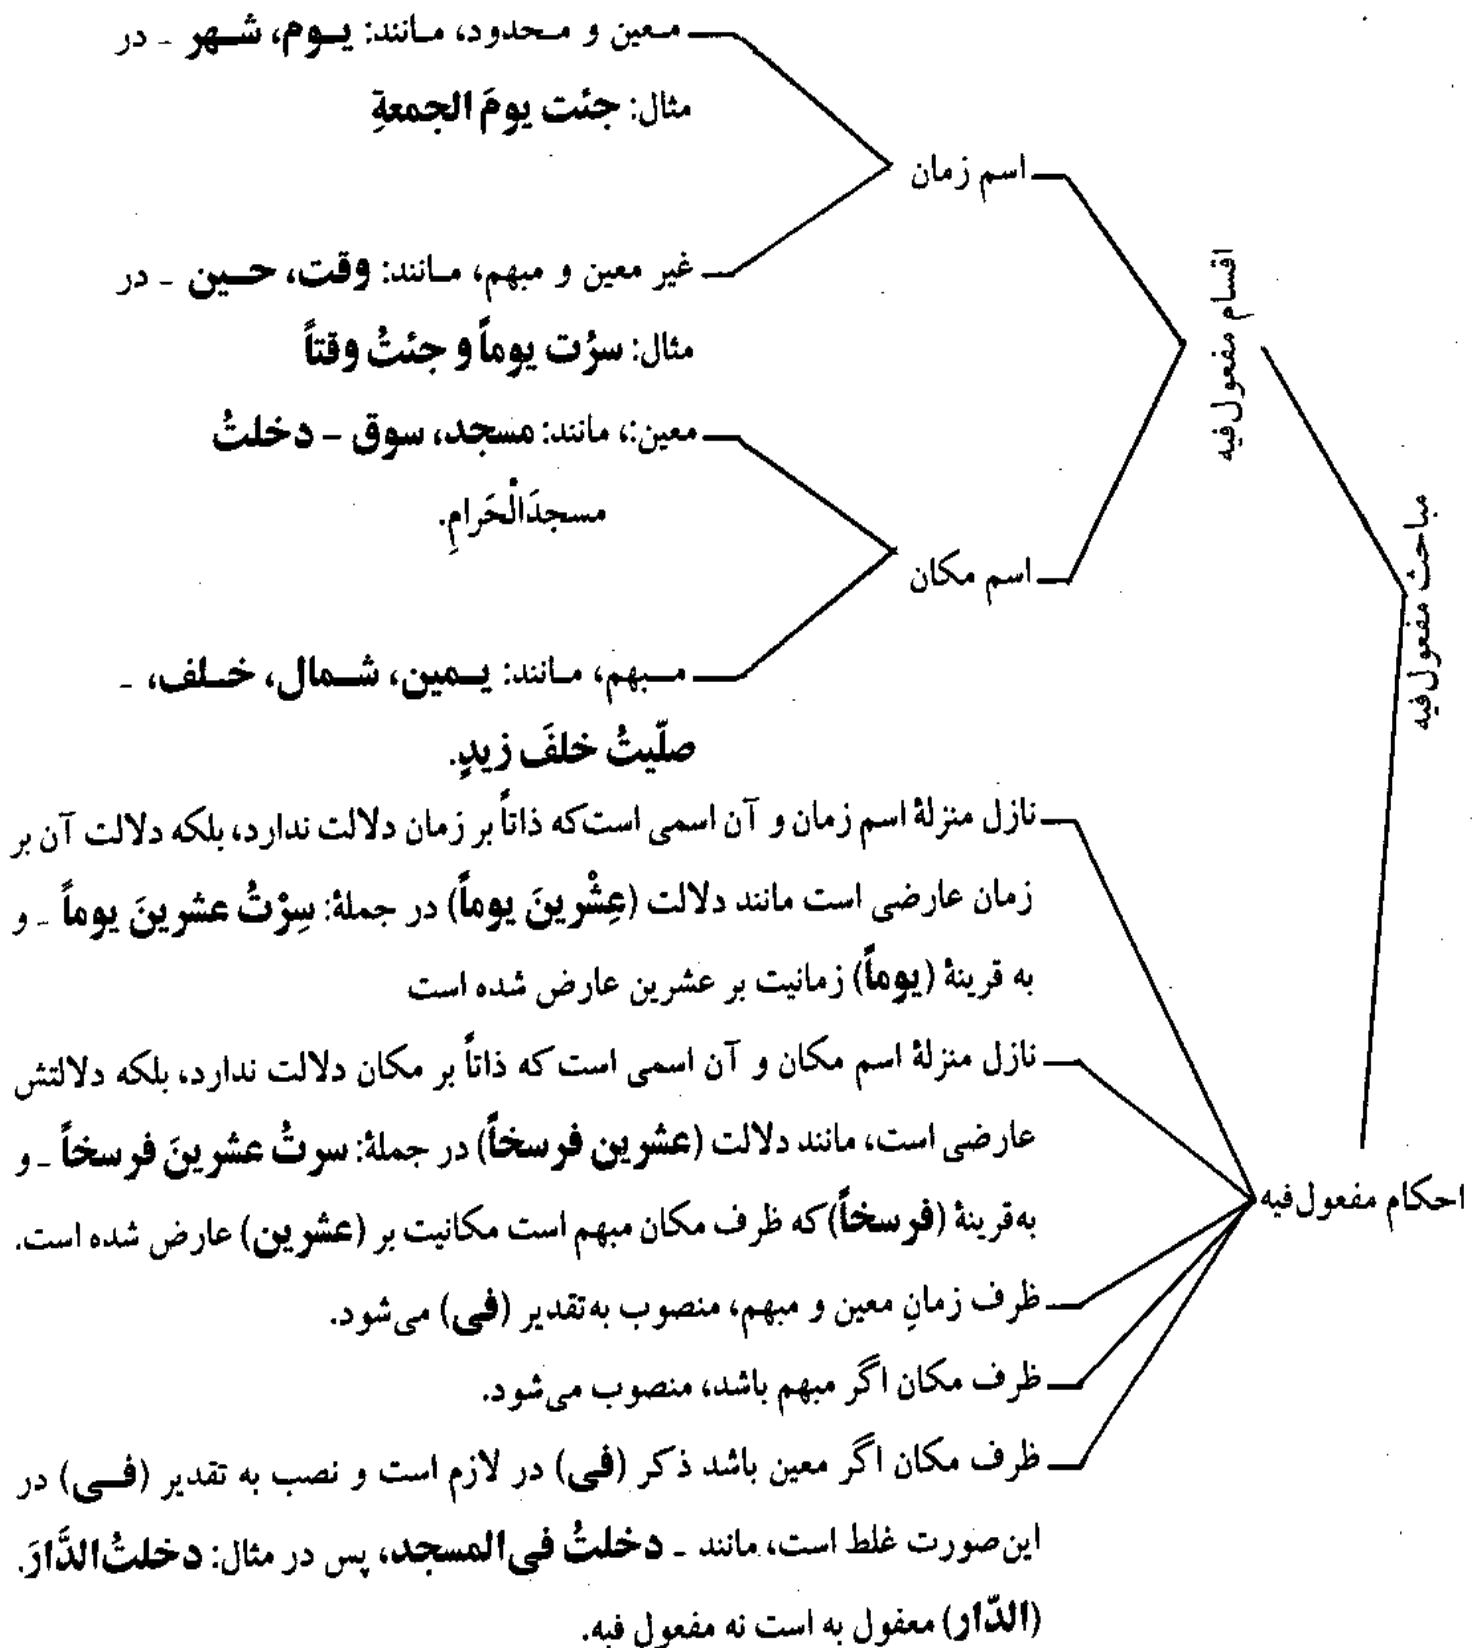 مباحث مفعول‌فیه
اقسام مفعول‌فیه
اسم زمان
معین و محدود، مانند: یوم، شهر - در
مثال: جئت یومَ الجمعةِ
غیر معین و مبهم، مانند: وقت، حین - در
مثال: سرْت یوماً و جئتُ وقتاً
اسم مکان
معین:، مانند: مسجد، سوق - دخلتُ
مسجدَالْحَرامِ.
مبهم، مانند: یمین، شمال، خلف، -
صلّیتُ خلفَ زیدٍ.
احکام مفعول‌فیه
نازل منزلهٔ اسم زمان و آن اسمی است‌که ذاتاً بر زمان دلالت ندارد، بلکه دلالت آن بر
زمان عارضی است مانند دلالت (عِشْرینَ یوماً) در جملهٔ: سِرْتُ عشرینَ یوماً - و
به قرینهٔ (یوماً) زمانیت بر عشرین عارض شده است
نازل منزلهٔ اسم مکان و آن اسمی است که ذاتاً بر مکان دلالت ندارد، بلکه دلالتش
عارضی است، مانند دلالت (عشرین فرسخاً) در جملهٔ: سرتُ عشرینَ فرسخاً - و
به‌قرینهٔ (فرسخاً) که ظرف مکان مبهم است مکانیت بر (عشرین) عارض شده است.
ظرف زمانِ معین و مبهم، منصوب به‌تقدیر (فی) می‌شود.
ظرف مکان اگر مبهم باشد، منصوب می‌شود.
ظرف مکان اگر معین باشد ذکر (فی) در لازم است و نصب به تقدیر (فی) در
این‌صورت غلط است، مانند - دخلتُ فی‌المسجد، پس در مثال: دخلتُ‌الدَّارَ.
(الدّار) معفول به است نه مفعول فیه.